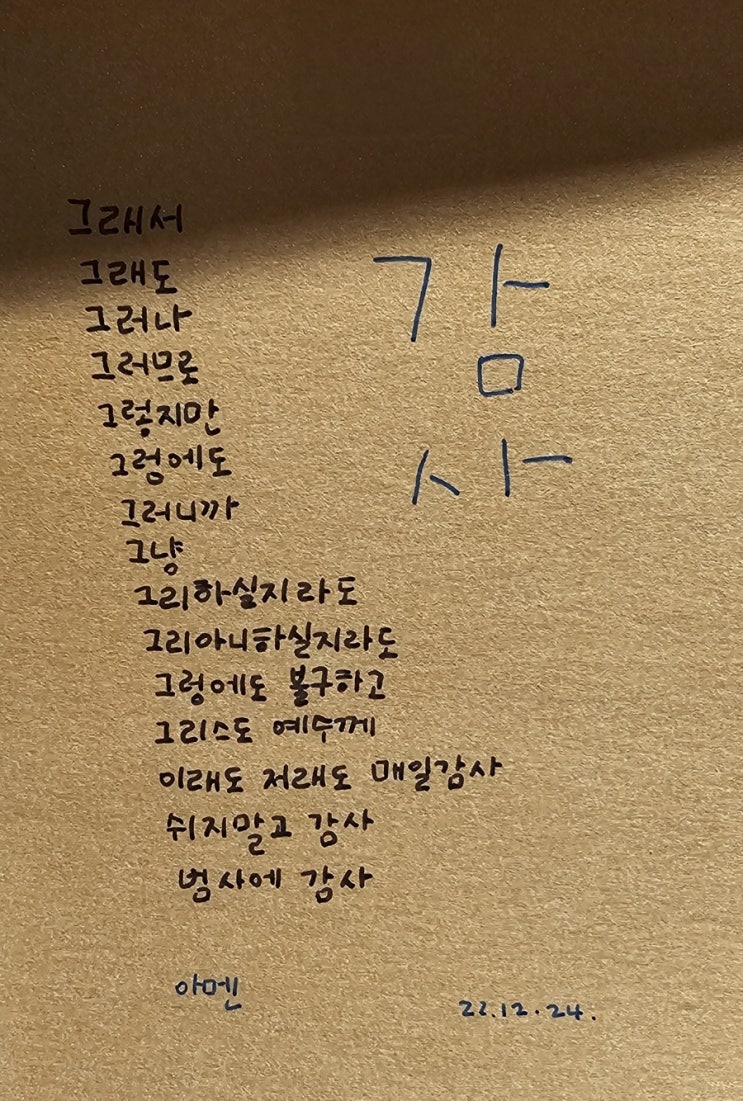 그래서
그래도
그러나
그러므로
그렇지만
그럼에도
그러니까
그냥
그리하실지라도
그리아니하실지라도
그럼에도 불구하고
그리스도 예수께
이래도 저래도 매일감사
쉬지말고 감사
범사에 감사
감
사
아멘
22.12.24.